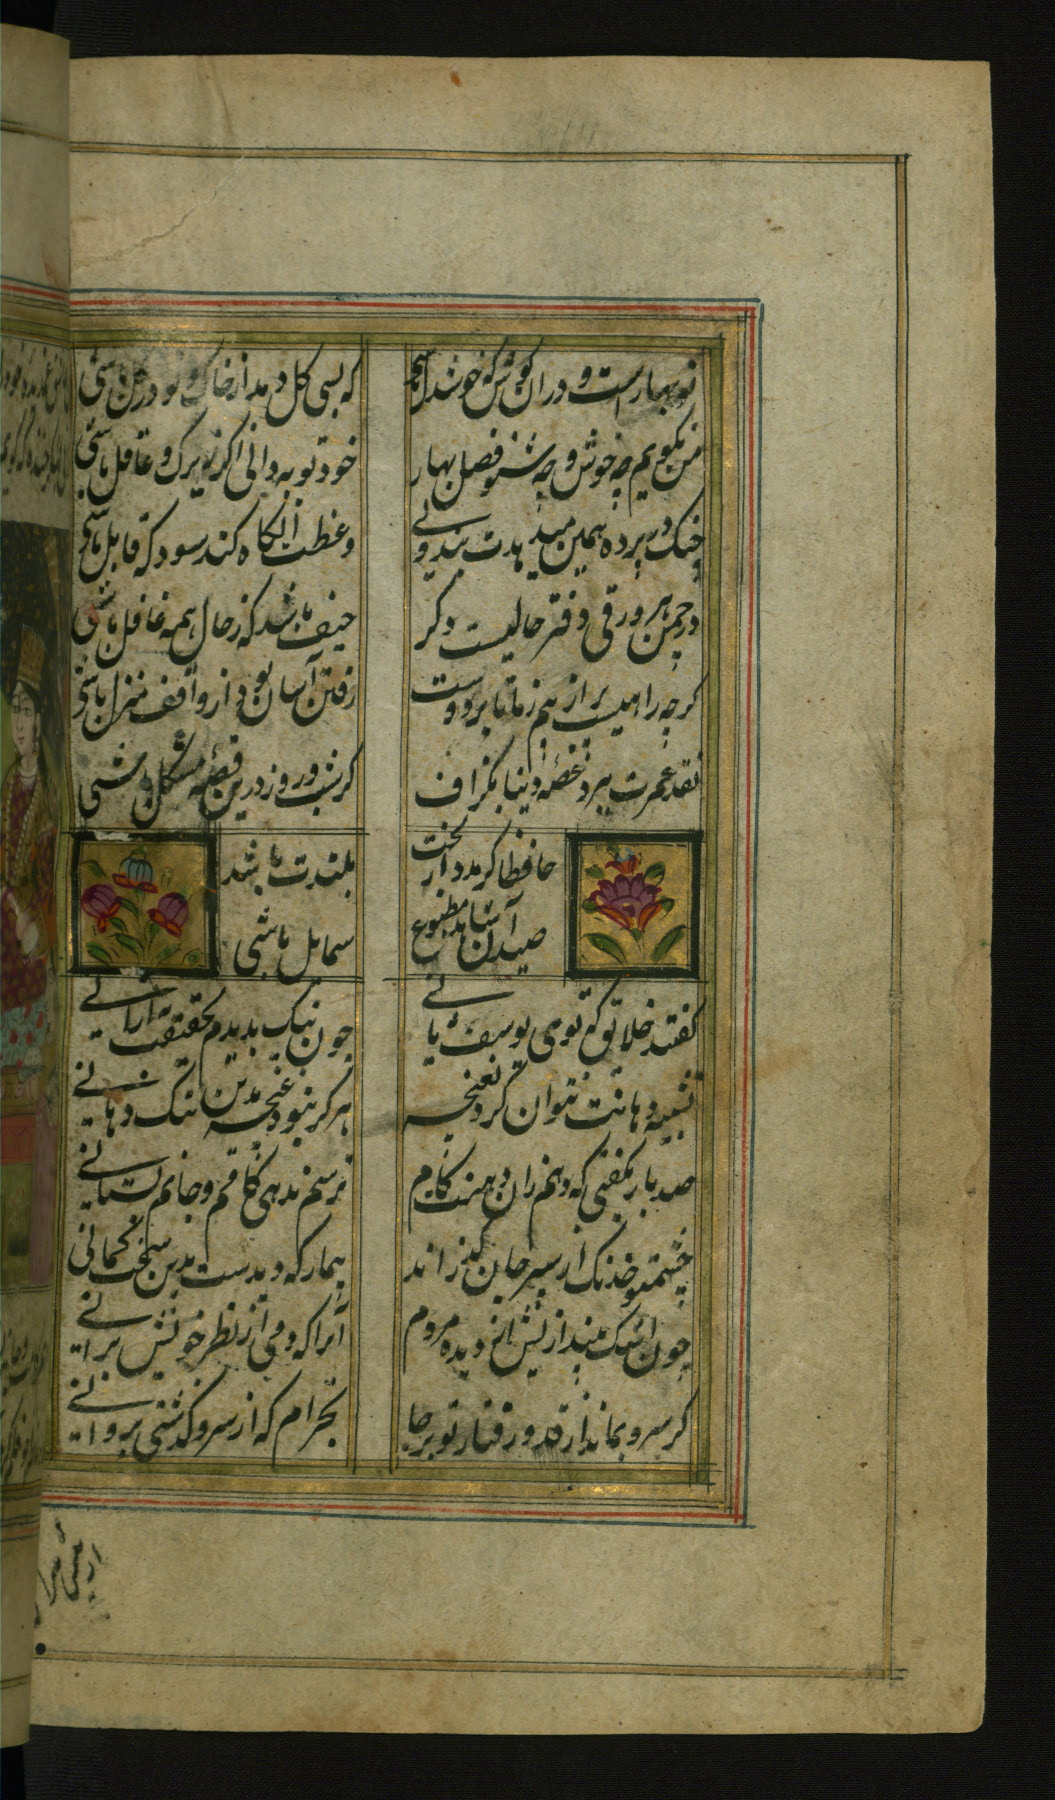 نوبهارست و دران کوش که خوشدل باشی
که بسی کل دمد از خاک و تو در کل باشی
من نکویم چه خوش و چه شنو فصل بهار
خود تو به دانی اکر زیرک و عاقل باشی
چنک در پرده همین میدهدت پند ولی
وعظت آنکاه کند سود که قابل باشی
در چمن هر ورقی دفتر حالیست دکر
حیف باشد که ز حال همه غافل باشی
کرچه راهیست پر از بیم ز ما تا بر دوست
رفتن آسان بود ار واقف منزل باشی
نقد عمرت ببرد غصه دنیا بکزاف
کر شب و روز درین قصه مشکل باشی
حافظا کر مدد از بخت
بلندت باشد
صید آن شاهد مطبوع
شمایل باشی
کفتند خلایق که توی یوسف ثانی
چون نیک بدیدم بحقیقت به ازانی
تشبیه دهانت نتوان کرد بغنچه
هرکز نبود غنچه بدین تنک دهانی
صد بار بکفتی که دهم زان دهنت کام
ترسم ندهی کامم و جانم بستانی
چشم تو خدنک از سپر جان کذراند
بیمار که دیدست بدین سخت کمانی
چون اشک بیندازیش از دیده مردم
آنرا که دمی از نظر خویش برانی
کر سرو بماند از قد و رفتار تو بر جا
بخرام که از سرو کذشتی بروانی